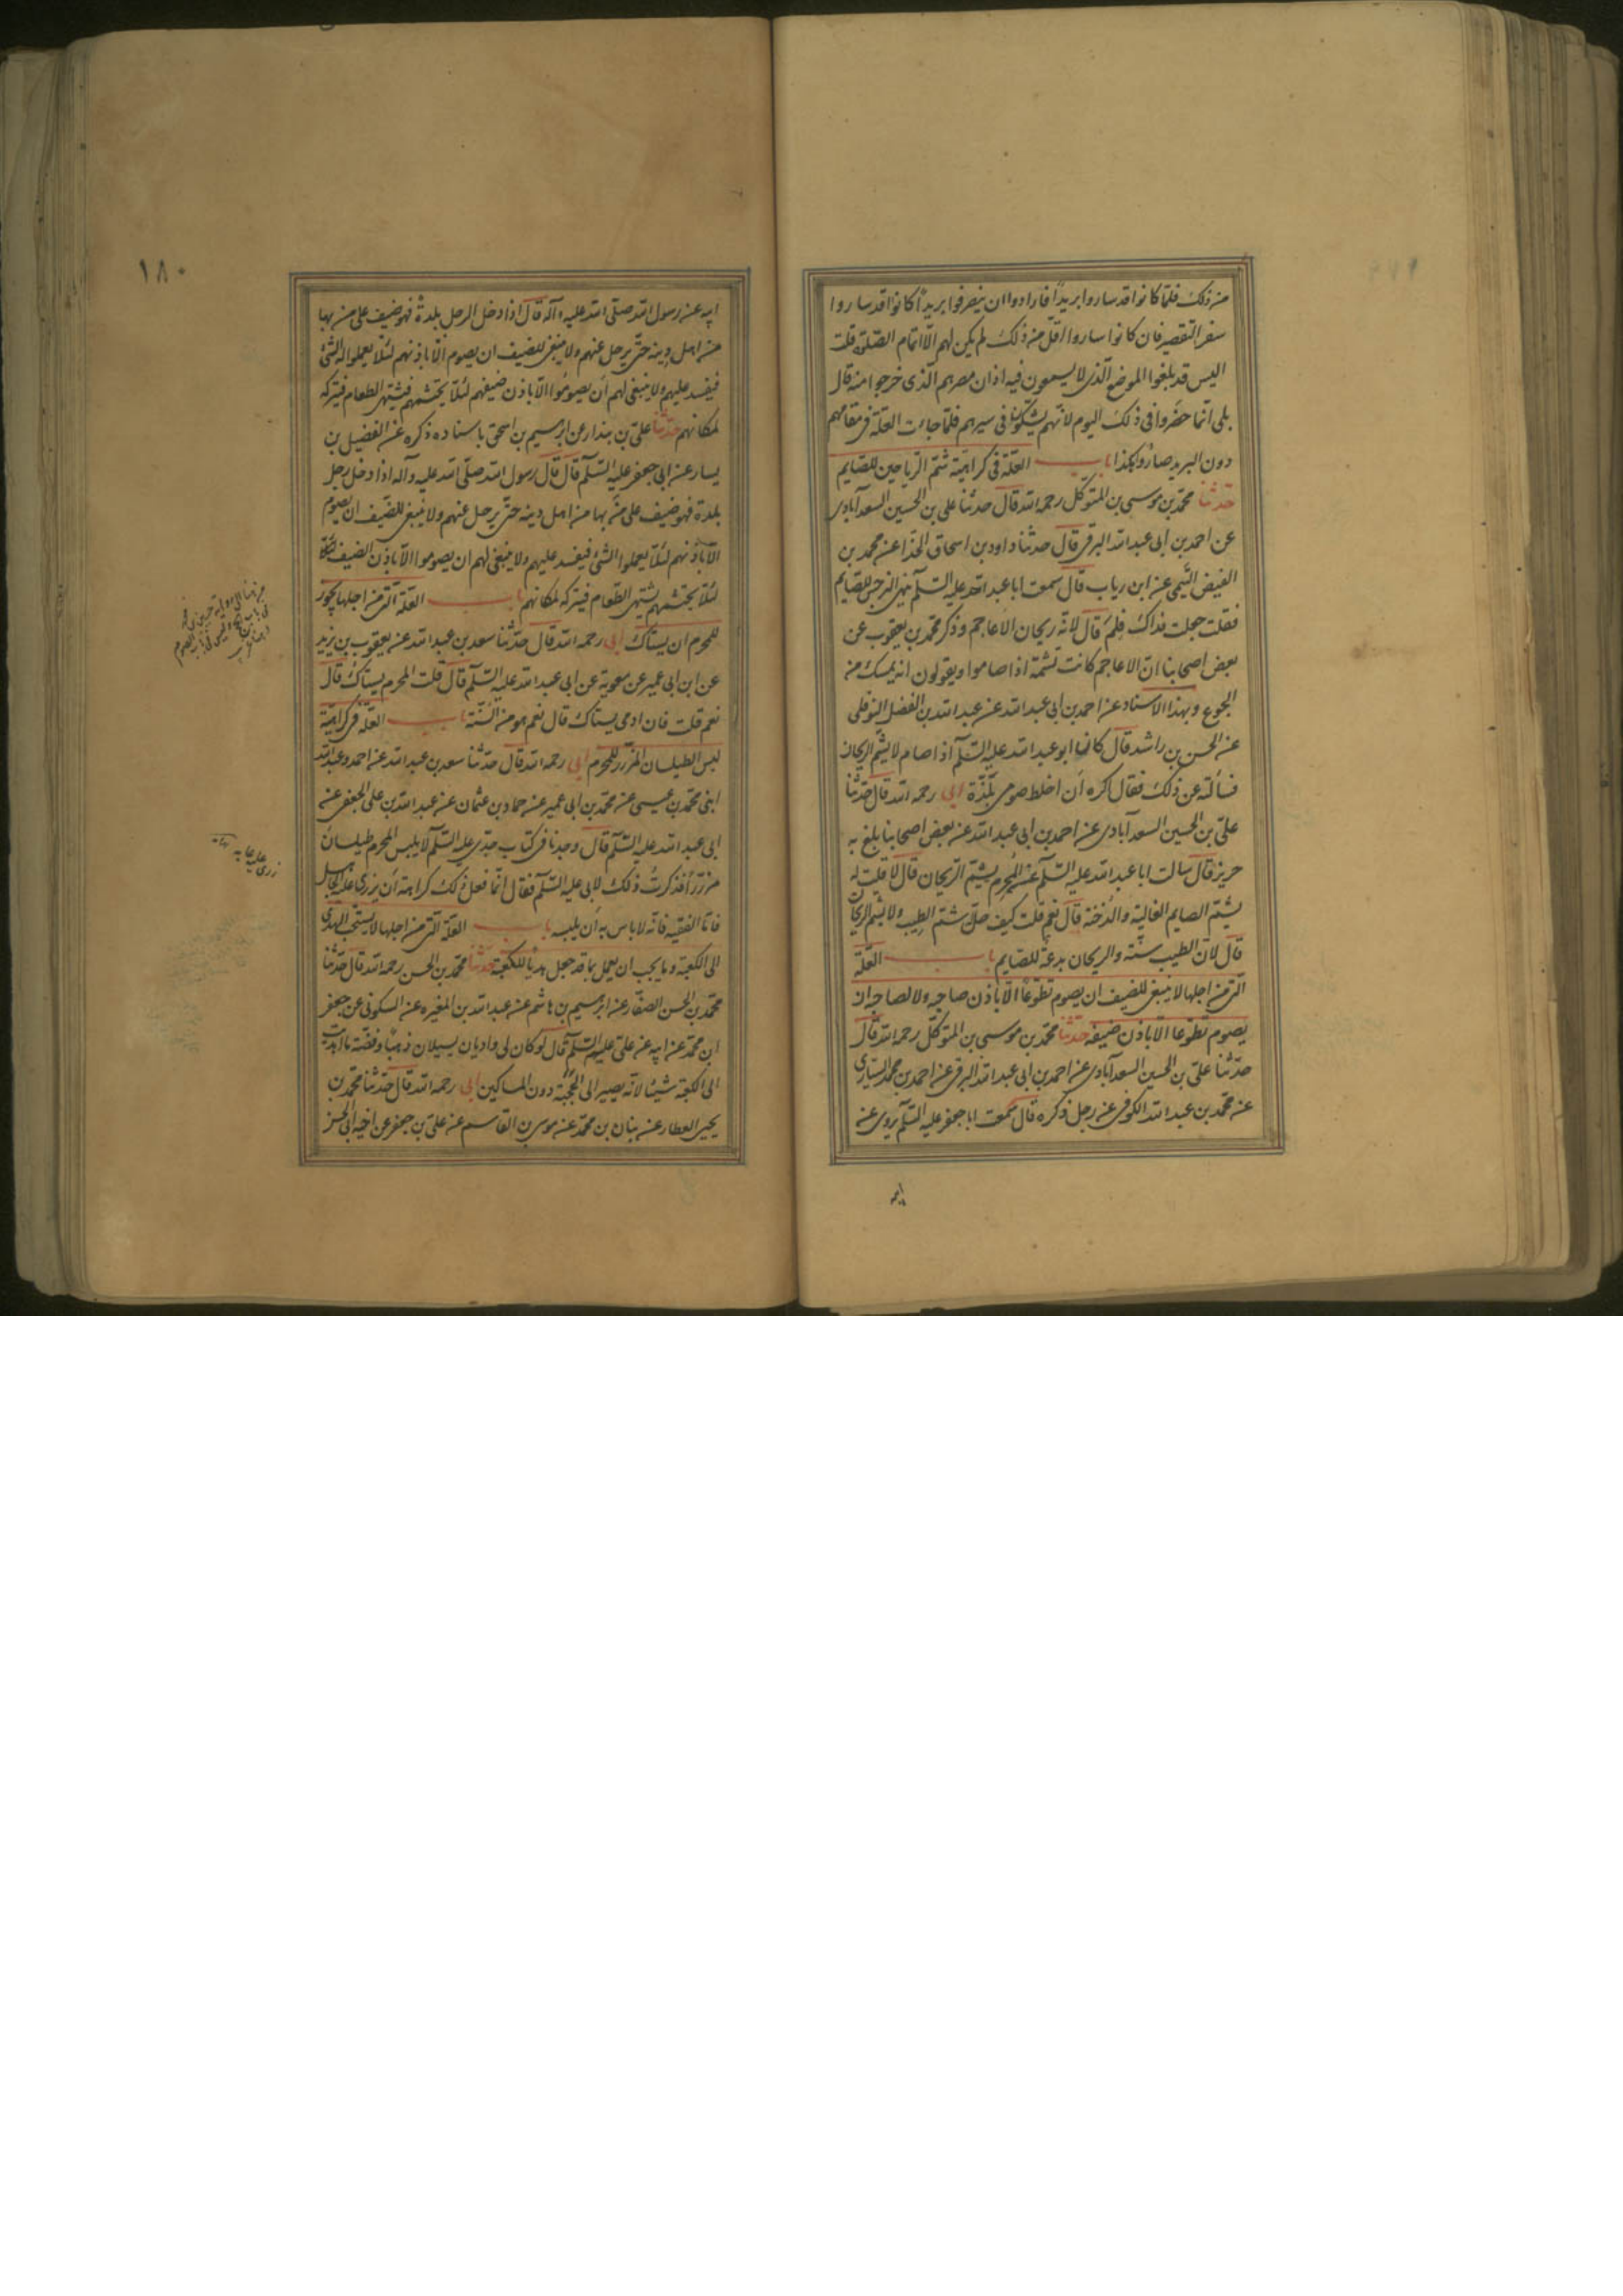 من ذلك فلما كانوا قد ساروا بريدا فارادوا ان ينصرفوا بريدا كانوا قد ساروا
سفر التقصير فان كانوا ساروا اقل من ذلك لم يكن لهم الا اتمام الصلوة قلت
اليس قد بلغوا الموضع الذى لا يسمعون فيه اذان مصرهم الذى خرجوا منه قال
بلى انما قصروا فى ذلك اليوم لانهم لم يشكوا فى سيرهم فلما جاءت العلة فى مقامهم
دون البريد صاروا هكذا باب العلة فى كراهية شم الرياحين للصايم
حدثنا محمد بن موسى بن المتوكل رحمه الله قال حدثنا على بن الحسين السعدآبادى
عن احمد بن ابى عبد الله البرقى قال حدثنا داود بن اسحاق الحذا عن محمد بن
الفيض التيمى عن ابن رياب قال سمعت ابا عبد الله عليه السلم ينهى النرجس للصايم
فقلت جعلت فداك فلم قال لانه ريحان الاعاجم وذكر محمد بن يعقوب عن
بعض اصحابنا ان الاعاجم كانت تشمه اذا صاموا ويقولون انه يمسك من
الجوع وبهذا الاسناد عن احمد بن ابى عبد الله عن عبد الله بن الفضل النوفلى
عن الحسن بن راشد قال كان ابو عبد الله عليه السلم اذا صام لا يشم الريحان
فسألته عن ذلك فقال اكره ان اخلط صومى بلذة ابى رحمه الله قال حدثنا
على بن الحسين السعدآبادى عن احمد بن ابى عبد الله عن بعض اصحابنا بلغ به
حريز قال سالت ابا عبد الله عليه السلم عن المحرم يشم الريحان قال لا قلت له
يشم الصايم الغالية والدخنة قال نعم قلت كيف حل شم الطيب ولا يشم الريحان
قال لان الطيب سنة والريحان بدعة للصايم باب العلة
التى من اجلها لا ينبغى للضيف ان يصوم تطوعا الا باذن صاحبه ولا لصاحبه ان
يصوم تطوعا الا باذن ضيفه حدثنا محمد بن موسى بن المتوكل رحمه الله قال
حدثنا على بن الحسين السعدآبادى عن احمد بن ابى عبد الله البرقى عن احمد بن محمد السيارى
عن محمد بن عبد الله الكوفى عن رجل ذكره قال سمعت ابا جعفر عليه السلم يروى عن
ابيه
١٨٠
ابيه عن رسول الله صلى الله عليه وآله قال اذا دخل الرجل بلدة فهو ضيف على من بها
من اهل دينه حتى يرحل عنهم ولا ينبغى للضيف ان يصوم الا باذنهم لئلا يعملوا له الشئ
فيفسد عليهم ولا ينبغى لهم ان يصوموا الا باذن ضيفهم لئلا يحتشمهم فيشتهى الطعام فيتركه
لمكانهم حدثنا على بن بندار عن ابرهيم بن اسحق باسناده ذكره عن الفضيل بن
يسار عن ابى جعفر عليه السلم قال قال رسول الله صلى الله عليه وآله اذا دخل رجل
بلدة فهو ضيف على من بها من اهل دينه حتى يرحل عنهم ولا ينبغى للضيف ان يصوم
الا باذنهم لئلا يعملوا الشئ فيفسد عليهم ولا ينبغى لهم ان يصوموا الا باذن الضيف لئلا
لئلا يحتشمهم يشتهى الطعام فيتركه لمكانهم باب العلة التى من اجلها يجوز
للمحرم ان يستاك ابى رحمه الله قال حدثنا سعد بن عبد الله عن يعقوب بن يزيد
عن ابن ابى عمير عن معوية عن ابى عبد الله عليه السلم قال قلت المحرم يستاك قال
نعم قلت فان ادمى يستاك قال نعم هو من السنة باب العلة فى كراهية
لبس الطيلسان المزرر للمحرم ابى رحمه الله قال حدثنا سعد بن عبد الله عن احمد وعبد الله
ابنى محمد بن عيسى عن محمد بن ابى عمير عن حماد بن عثمان عن عبد الله بن على الجعفى عن
ابى عبد الله عليه السلم قال وجدنا فى كتاب جدى عليه السلم لا يلبس المحرم طيلسان
مزررا فذكرت ذلك لابى عليه السلم فقال انما فعل ذلك كراهة ان يزرى عليه الجاهل
فاما الفقيه فانه لاباس به ان يلبسه باب العلة التى من اجلها لا يستحب الهدى
الى الكعبة وما يجب ان يعمل بما قد جعل هديا للكعبة حدثنا محمد بن الحسن رحمه الله قال حدثنا
محمد بن الحسن الصفار عن ابرهيم بن هاشم عن عبد الله بن المغيره عن السكونى عن جعفر
ابن محمد عن ابيه عن على عليهم السلم قال لو كان لى واديان يسيلان ذهبا وفضة ما اهديت
الى الكعبة شيئا لانه يصير الى الحجبة دون المساكين ابى رحمه الله قال حدثنا محمد بن
يحيى العطار عن بنان بن محمد عن موسى بن القاسم عن على بن جعفر عن اخيه ابى الحسن
زرى عليه عابه